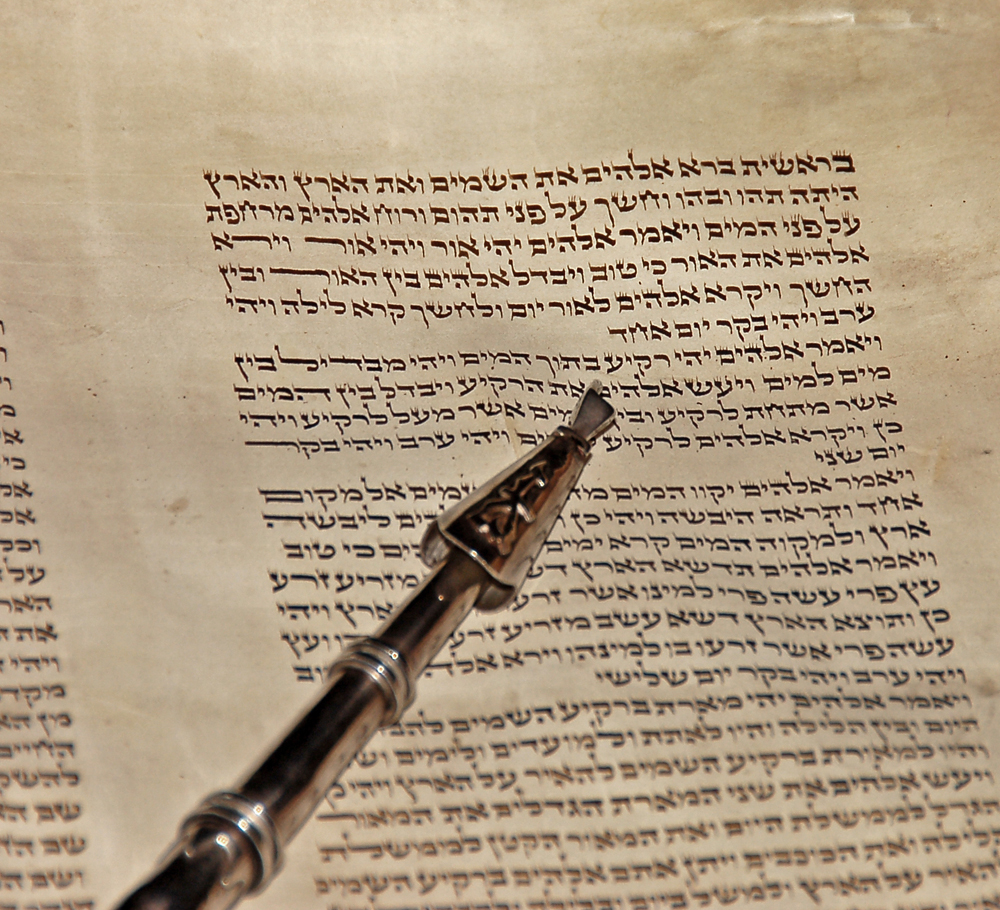 בראשית ברא אלהים את השמים ואת הארץ והארץ
היתה תהו ובהו וחשך על פני תהום ורוח אלהים מרחפת
על פני המים ויאמר אלהים יהי אור ויהי אור וירא
אלהים את האור כי טוב ויבדל אלהים בין האור ובין
החשך ויקרא אלהים לאור יום ולחשך קרא לילה ויהי
ערב ויהי בקר יום אחד
ויאמר אלהים יהי רקיע בתוך המים ויהי מבדיל בין
מים למים ויעש אלהים את הרקיע ויבדל בין המים
אשר מתחת לרקיע אשר מעל לרקיע ויהי
כן ויקרא אלהים לרקיע ויהי ערב ויהי בקר
יום שני
ויאמר אלהים יקוו המים אל מקום
אחד ותראה היבשה ויהי כן ליבשה
ארץ ולמקוה המים קרא ימים כי טוב
ויאמר אלהים תדשא הארץ מזריע זרע
עץ פרי עשה פרי למינו אשר זרעו ויהי
כן ותוצא הארץ דשא עשב מזריע זרע ועץ
עשה פרי אשר זרעו בו למינהו וירא
ויהי ערב ויהי בקר יום שלישי
ויאמר אלהים יהי מארת ברקיע השמים
היום ובין הלילה והיו לאתת ולמועדים ולימים
והיו למאורת ברקיע השמים להאיר על הארץ ויהי
ויעש אלהים את שני המארת הגדלים את המאור
הגדל לממשלת היום ואת המאור הקטן לממשלת
הלילה ואת הכוכבים ויתן אתם אלהים ברקיע השמים
להאיר על הארץ ולמשל ביום